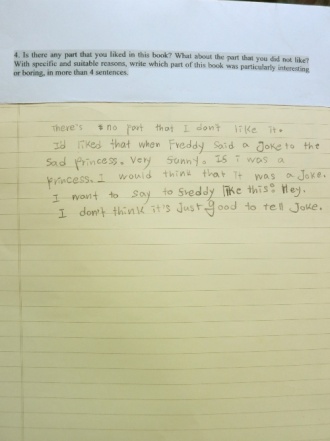 4. Is there any part that you liked in this book? What about the part that you did not like?
With specific and suitable reasons, write which part of this book was particularly interesting
or boring, in more than 4 sentences.
There's no part that I don't like it.
Id liked that when Freddy said a Joke to the
Sad princess. Very funny. If i was a
princess. I would think that it was a Joke.
I want to say to freddy like this: Hey.
I don't think it's Just good to tell Joke.